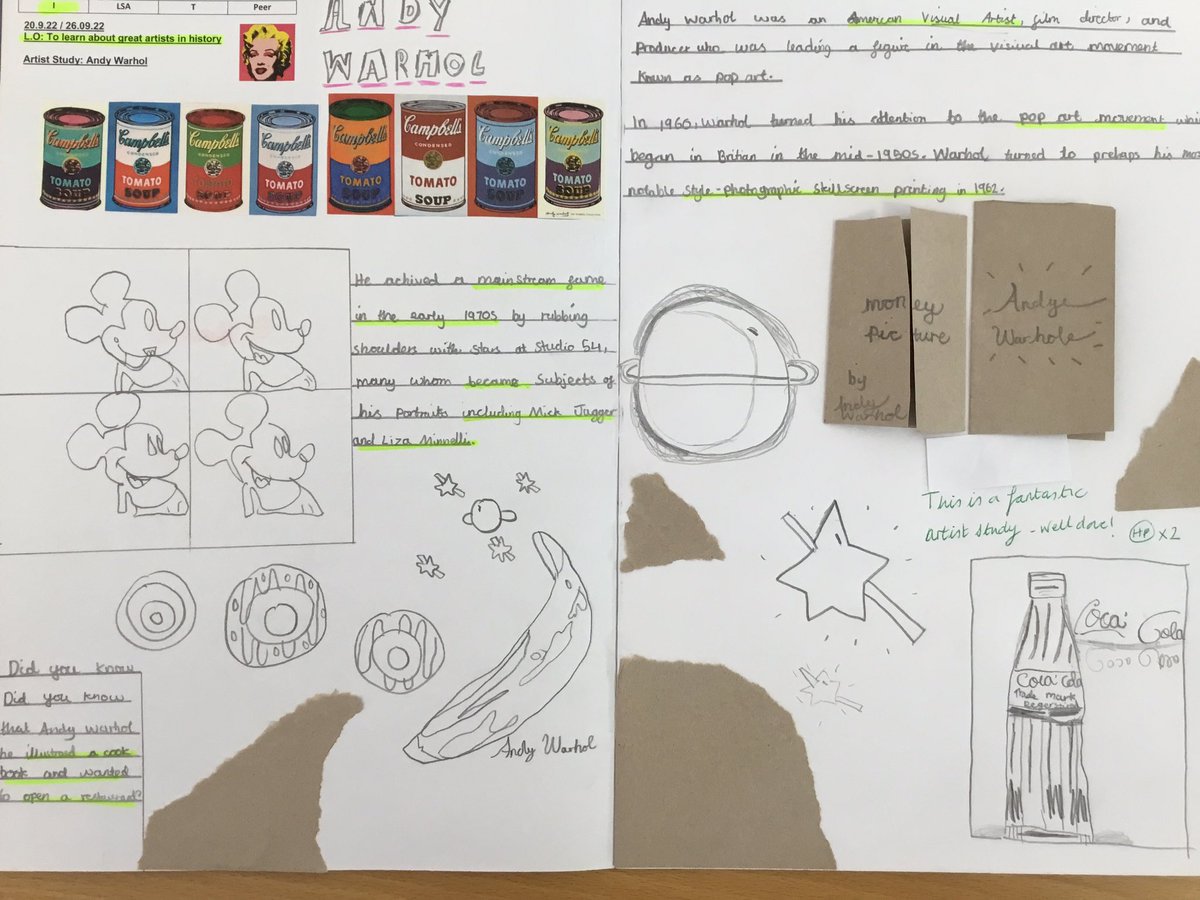 I LSA T Peer
20.9.22 / 26.09.22
L.O: To learn about great artists in history
Artist Study: Andy Warhol
ANDY
WARHOL
Campbell's Campbell's Campbell's Campbell's Campbell's Campbell's Campbell's Campbell's
CONDENSED CONDENSED CONDENSED CONDENSED CONDENSED CONDENSED CONDENSED CONDENSED
TOMATO TOMATO TOMATO TOMATO TOMATO TOMATO TOMATO TOMATO
SOUP SOUP SOUP SOUP SOUP SOUP SOUP SOUP
He achived a mainstream fame
in the early 1970s by rubbing
shoulders with stars at Studio 54,
many whom became subjects of
his Portraits including Mick Jagger
and Liza Minnelli.
Andy Warhol
Did you know
Did you know
that Andy Warhol
he illustrad a cook
book and wanted
to open a restaurant?
Andy Warhol was an American Visual Artist, film director, and
Producer who was leading a figuir in the visiual art movement
known as pop art.
In 1960, Warhol turned his attention to the pop art movement
began in Britan in the mid-1950s. Warhol turned to prehaps his
notable style - photographic skillscreen printing in 1962.
money
Picture
by
Andy
Warhol
Andye
Warhole
This is a fantastic
artist study - well done!
HP x2
Coca Cola
Coca Cola
Coca Cola
Trade mark